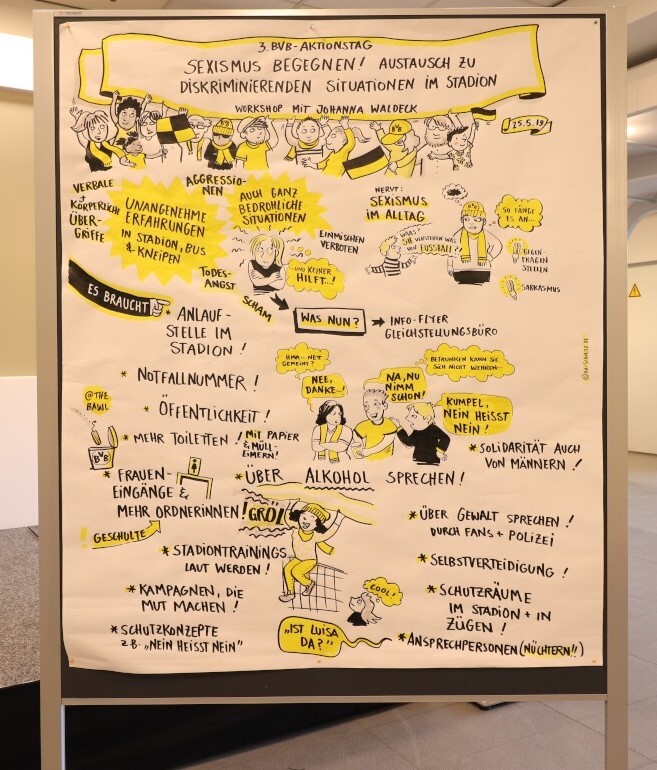 3. BVB-AKTIONSTAG
SEXISMUS BEGEGNEN! AUSTAUSCH ZU
DISKRIMINIERENDEN SITUATIONEN IM STADION
WORKSHOP MIT JOHANNA WALDECK
25.5.19
BVB
VERBALE
+
KÖRPERLICHE
ÜBER-
GRIFFE
UNANGENEHME
ERFAHRUNGEN
IN STADION, BUS
& KNEIPEN
AGGRESSIO-
NEN
AUCH GANZ
BEDROHLICHE
SITUATIONEN
EINMISCHEN
VERBOTEN
...UND KEINER
HILFT...!
TODES-
ANGST
SCHAM
NERVT:
SEXISMUS
IM ALLTAG
WAAS?
SIE VERSTEHEN WAS
VON FUSSBALL?!
SO FÄNGT
ES AN...
GEGEN-
FRAGEN
STELLEN
SARKASMUS
ES BRAUCHT
WAS NUN?
INFO-FLYER
GLEICHSTELLUNGSBÜRO
* ANLAUF-
STELLE IM
STADION!
* NOTFALLNUMMER!
* ÖFFENTLICHKEIT!
@THE
BAWL
BVB
* MEHR TOILETTEN!
MIT PAPIER
& MÜLL-
EIMERN!
* FRAUEN-
EINGÄNGE &
MEHR ORDNERINNEN!
! GESCHULTE
HMM... NET
GEMEINT?
NEE,
DANKE...!
NA, NU
NIMM
SCHON!
BETRUNKEN KANN SIE
SICH NICHT WEHREN...
KUMPEL,
NEIN HEISST
NEIN!
* SOLIDARITÄT AUCH
VON MÄNNERN!
* ÜBER ALKOHOL SPRECHEN!
GRÖL
* STADIONTRAININGS
LAUT WERDEN!
* KAMPAGNEN, DIE
MUT MACHEN!
* SCHUTZKONZEPTE
Z.B. „NEIN HEISST NEIN"
* ÜBER GEWALT SPRECHEN!
DURCH FANS + POLIZEI
* SELBSTVERTEIDIGUNG!
* SCHUTZRÄUME
IM STADION + IN
ZÜGEN!
COOL!
„IST LUISA
DA?"
* ANSPRECHPERSONEN (NÜCHTERN!!)